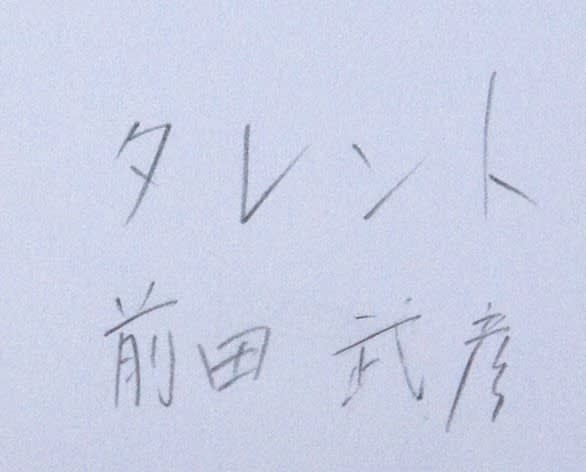 タレント
前田 武彦